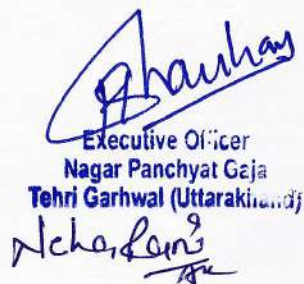 Chauhan
Executive Officer
Nagar Panchyat Gaja
Tehri Garhwal (Uttarakhand)
Neha Rani